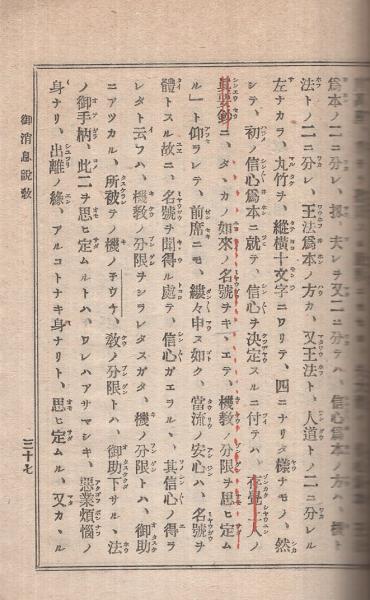 爲本ノ二ニ分レ、扨夫レヲ又二ニ分テハ、信心爲本ノ方ハ、機ト
法トノ二ニ分レ、王法爲本ノ方ハ、又王法ト、人道トノ二ニ分レル
左ナカラ、丸竹ヲ、縱橫十文字ニワリテ、四ニナリタ樣ナモノ、然
シテ、初ノ信心爲本ニ就テ、信心ヲ決定スルニ付テハ、存覺上人ノ
眞要鈔ニ、タヽカノ如來ノ、名號ヲキヽエテ、機敎ノ分限ヲ思ヒ定ム
ル」ト仰ラレテ、前席ニモ、縷々申ス如ク、當流ノ安心ハ、名號ヲ
體トスル故ニ、名號ヲ聞得ル處テ、信心ガエラルヽ、其信心ノ得ラ
レタト云フハ、機敎ノ分限ヲシラレタスガタ、機ノ分限トハ、御助
ニアツカル、所被テノ機ノチウチ、敎ノ分限トハ、御助下サル、法
ノ御手柄、此二ヲ思ヒ定ムルトハ、ワレハアサマシキ、惡業煩惱ノ
身ナリ、出離ノ緣、アルコトナキ身ナリト、思ヒ定ムル、又カヽル
御消息說敎
三十七